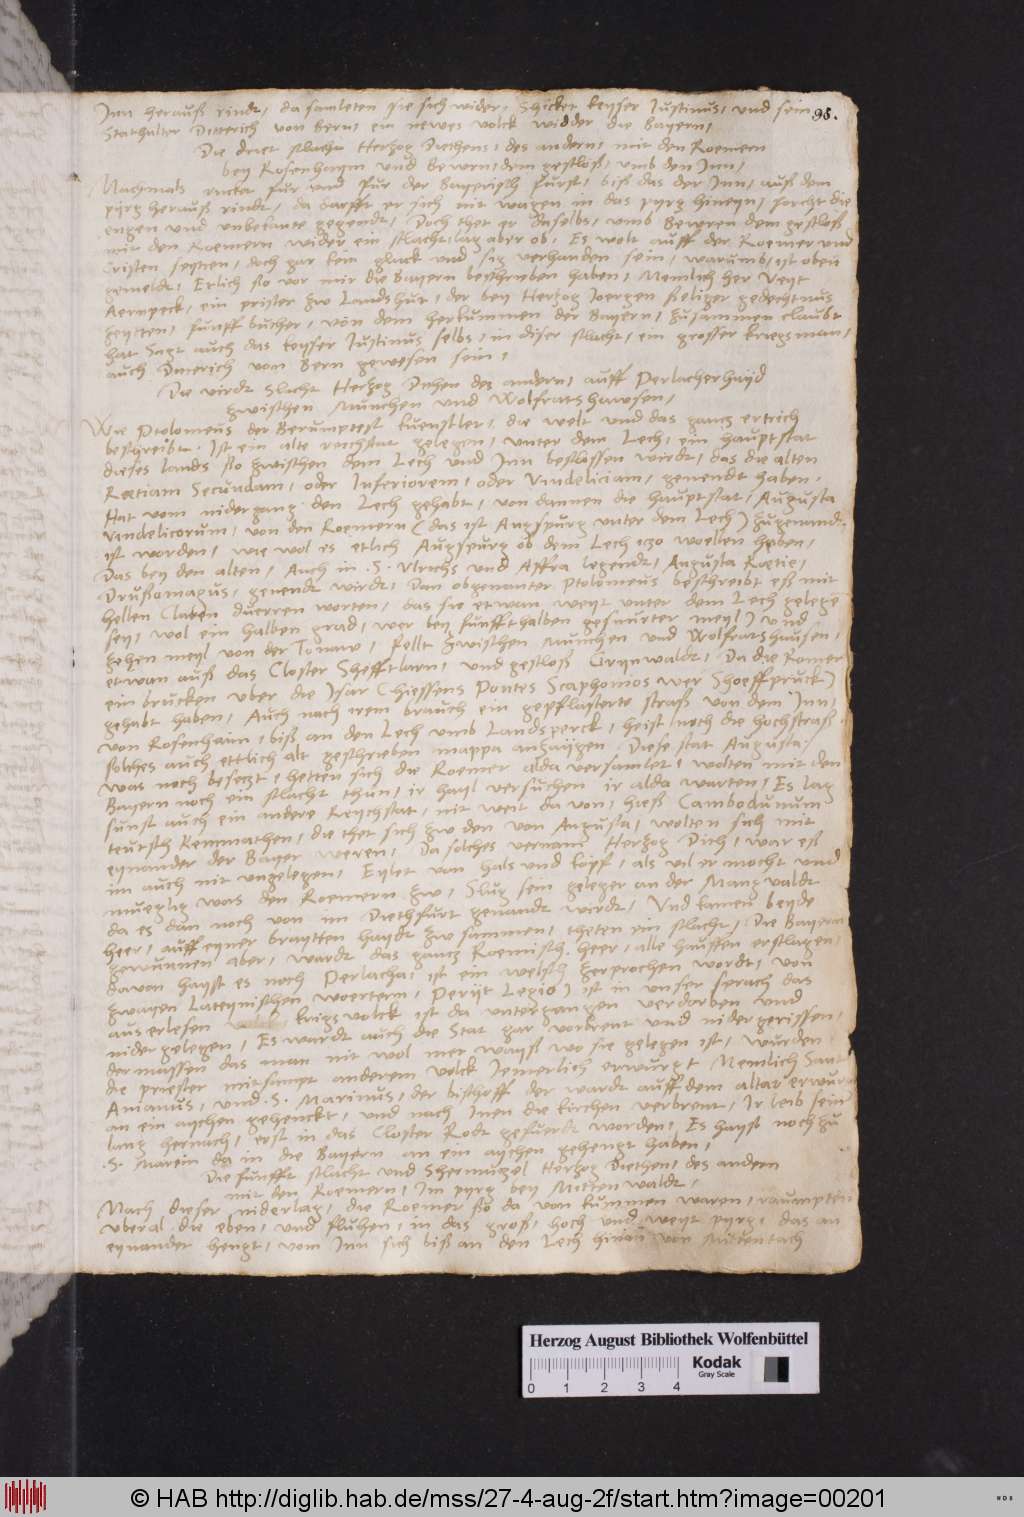 Inn herauß rindt, da samleten sie sich wider, Schicket keyser Justinus, und sein
98.
Stathalter Ditterich von Bern, ein newes volck widder die Bayern,
Die driet slacht Hertzog Diethens, des andern, mit den Roemern
bey Rosenhaym und Bewrn, dem gestloß, umb den Inn,
Nachmals ruckt fur und fur der Bayerisch furst, biß das der Inn, auß dem
pyrg herauß rindt, da darfft er sich nit wagen in das pyrg hineyn, forcht die
engen und unbekante gegendt, Doch thet er daselbs, umb Beweren dem gestloß
mit den Roemern wider ein slacht, lag aber ob, Es wolt auff der Roemer und
Cristen seytten, doch gar kein gluck und sig verhanden sein, warumb, ist oben
gemeldt, Etlich so vor mir die Bayern beschrieben haben, Nemlich her Veyt
Aernpeck, ein prister zw Landshut, der bey Hertzog Joergen seliger gedechtnus
zeytten, funff bucher, von dem herkummen der Bayern, zusammen claubt
hat Sagt auch das keyser Justinus selbs, in diser slacht, ein grosser kriegsman,
auch Dieterich von Bern gewesen sein,
Die virdt Slacht Hertzog Diethen des andern, auff Perlacherhayd
zwischen Munchen und Wolfratshawsen,
Wie Ptolomeus der Berumptest kuenstler, die welt und das gantz ertrich
beschreibt, Ist ein alte reichstat gelegen, unter dem Lech, ein hauptstat
dieses lands so zwischen dem Lech und Inn beschlossen wirdt, das die alten
Retiam Secundam, oder Inferiorem, oder Vindeliciam, genendt haben,
Hat vom nidergang den Lech gehabt, von dannen die hauptstat, Augusta
Vindelicorum, von den Roemern (das ist Augspurg unter dem Lech) zugenandt
ist worden, wie wol es etlich Augspurg ob dem Lech izo woellen haben,
Das bey den alten, Auch in .S. Ulrichs und Affra legendt, Augusta Retie,
Drusomagus, genendt wirdt, Dan obgenanter Ptolomeus beschreibt eß mit
hellen Claren duerren worten, das sie etwan weyt unter dem Lech gelege
sey, wol ein halben grad, (wer bey funffthalben gesmirter meyl) und
zehen meyl von der Tonaw, Fellt zwischen Munchen und Wolfratshausen,
etwan auß das Closter Shefftlarn, und gestloß Grynwaldt, Da die Romer
ein brucken uber die Isar (hiessens Pontes Scaphonios wer Shoeffpruck)
gehabt haben, Auch nach irem brauch ein gepflasterte straß von dem Inn,
von Rosenheim, biß an den Lech umb Landsperck, heist noch die hochstraß
solches auch ettlich alt geschrieben mappa anzaijgen Diese stat Augusta,
was noch besetzt, hetten sich die Roemer alda versamlet, wolten mit den
Bayern noch ein slacht thun, ir hayl versuchen ir alda warten, Es lag
sunst auch ein andere Reychstat, nit weit da von, hieß Cambodunum
teutsch Kemmathen, die thet sich zw den von Augusta, wolten sich mit
eynander der Bayer weren, Da solches vernam Hertzog Dieth, war eß
im auch nit ungelegen, Eylet von hals und kopf, als vil er mocht und
mueglig was den Roemern zw, Slug sein geleger an der Mangvaldt
da es dan noch von im Diethsfurt genandt wirdt, Und kamen beyde
heer, auff eyner braytten haydt zw summen, theten ein slacht, Die Bayern
gewunnen aber, wardt das gantz Roemisch heer, alle hauffen erslagen,
davon hayst es noch Perlacha, ist ein welsch zerprochen wordt, von
zwayen Lateynischen woertern, Perijt Legio, ist in unser sprach das
auserlesen krigsvolck ist da untergangen verdorben und
nider gelegen, Es wardt auch die Stat gar verbrent und nidergerissen,
dermassen das man nit wol mer wayß wo sie gelegen ist, wurden
die priester mitsampt anderem volck Jemerlich erwurgt Nemlich Sant
Amanus, und .S. Marinus, der bischoff der wardt auff dem altar erwurgt
an ein aychen gehenckt, und nach Inen die kirchen verbrent, Ir leib sein
lang hernach, erst in das Closter Rodt gefuerdt worden, Es hayß noch zu
.S. Marein da in die Bayern an ein aychen gehengt haben,
Die funfft slacht und Shermutzel Hertzog Diethen, des andern
mit den Roemern, Im pyrg bey Mittenwaldt,
Nach dieser niderlag, die Roemer so da von kummen waren, raumpten
uberal die eben, und fluhen, in das groß, hoch und weyt pyrg, das an
eynander hengt, vom Inn sich biß an den Lech hinan von Mittentach
Herzog August Bibliothek Wolfenbüttel
Kodak
Gray Scale
0 1 2 3 4
© HAB http://diglib.hab.de/mss/27-4-aug-2f/start.htm?image=00201